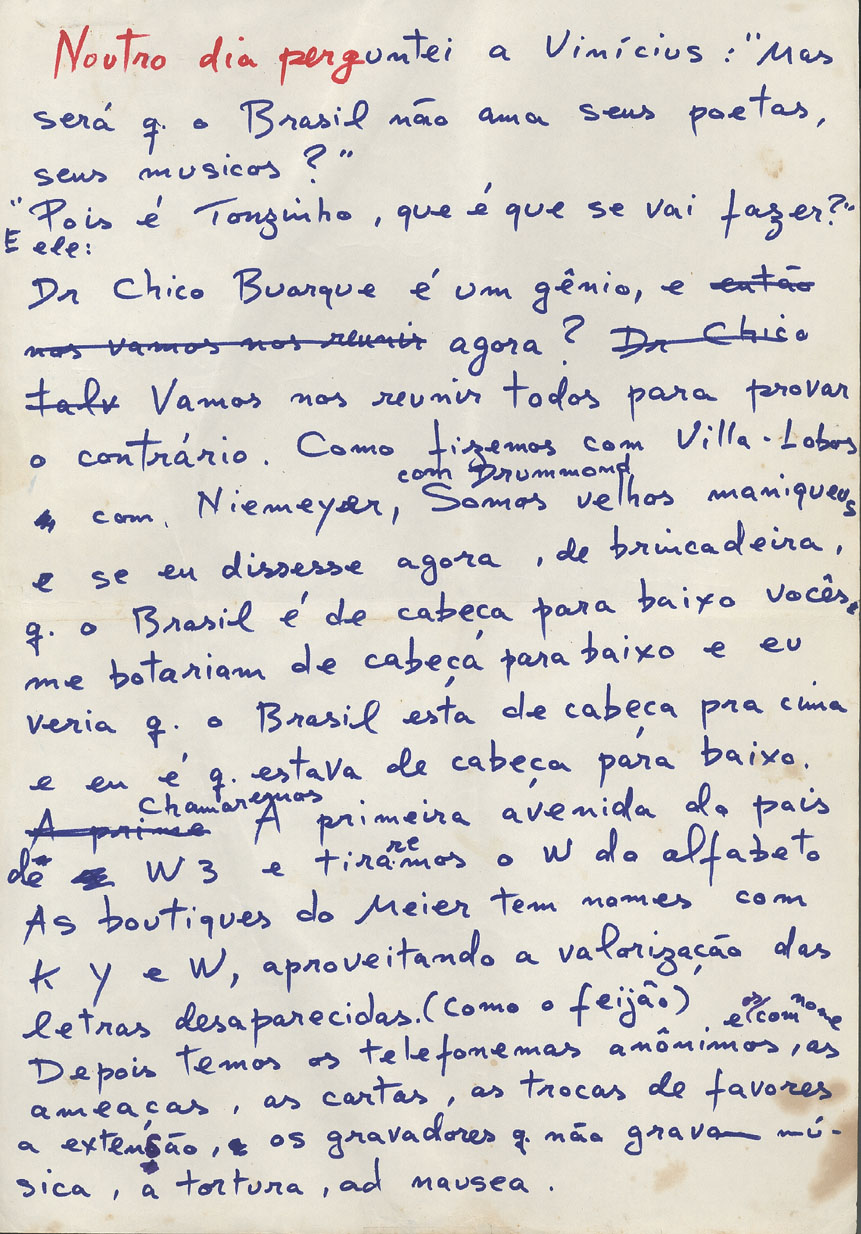 Noutro dia perguntei a Vinícius : "Mas
será q. o Brasil não ama seus poetas,
seus musicos ?"
"Pois é Tonzinho, que é que se vai fazer?"
E ele:
Dr Chico Buarque é um gênio, e então
nos vamos nos reunir agora ? Dr Chico
talv Vamos nos reunir todos para provar
o contrário. Como fizemos com Villa-Lobos
com Drummond
com. Niemeyer, Somos velhos maniqueus
e se eu dissesse agora, de brincadeira,
q. o Brasil é de cabeça para baixo vocês
me botariam de cabeça para baixo e eu
veria q. o Brasil está de cabeça pra cima
e eu é q. estava de cabeça para baixo.
Chamaremos
A prime A primeira avenida do pais
de W3 e tiraremos o W do alfabeto
As boutiques do Meier tem nomes com
K Y e W, aproveitando a valorização das
letras desaparecidas. (Como o feijão)
e os com nome
Depois temos os telefonemas anônimos, as
ameaças, as cartas, as trocas de favores
a extensão, os gravadores q. não gravam mú-
sica, a tortura, ad nausea.